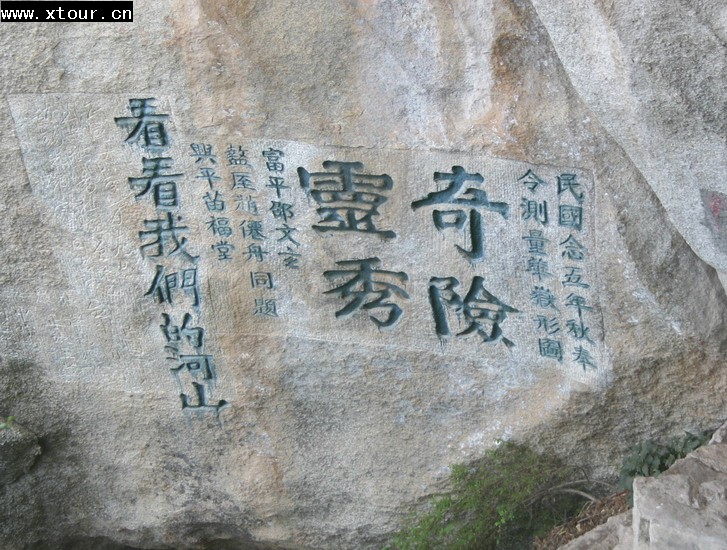 www.xtour.cn
民國念五年秋奉
令測量華嶽形圖
奇險
靈秀
富平邵文
盩厔趙僊舟同題
興平苗福堂
看看我們的河山